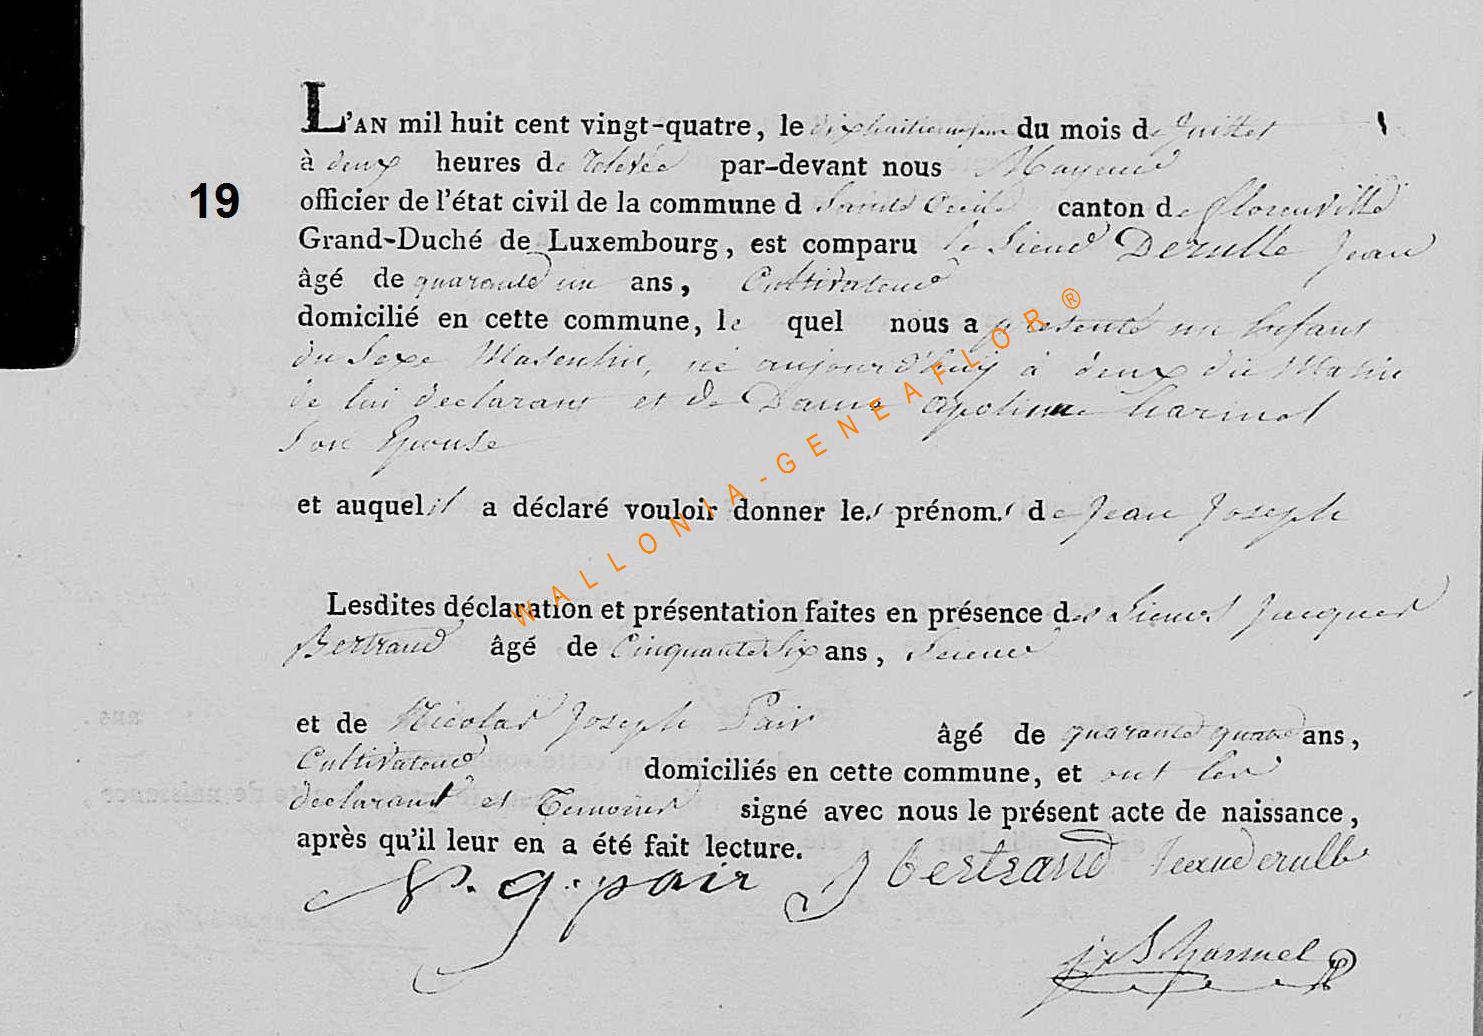 L'AN mil huit cent vingt-quatre, le dixhuitieme jour du mois de Juillet
à deux heures de relevée par-devant nous Mayeur
19
officier de l'état civil de la commune d Sainte Cecile canton de florenville
Grand-Duché de Luxembourg, est comparu le Sieur Derulle Jean
âgé de quarante un ans, Cultivateur
domicilié en cette commune, le quel nous a présenté un Enfant
du Sexe Masculin, né aujourd'huy à deux du Matin
de lui déclarant et de Dame apoline
Son Epouse
et auquel il a déclaré vouloir donner les prénoms de Jean Joseph
Lesdites déclaration et présentation faites en présence des Sieurs Jacques
Bertrand âgé de Cinquante Six ans,
et de Nicolas Joseph Pair âgé de quarante quatre ans,
Cultivateur domiciliés en cette commune, et ont les
declarant et Temoins signé avec nous le présent acte de naissance,
après qu'il leur en a été fait lecture.
N. J. pair J Bertrand Jean derulle
WALLONIA-GENEAFLOR®